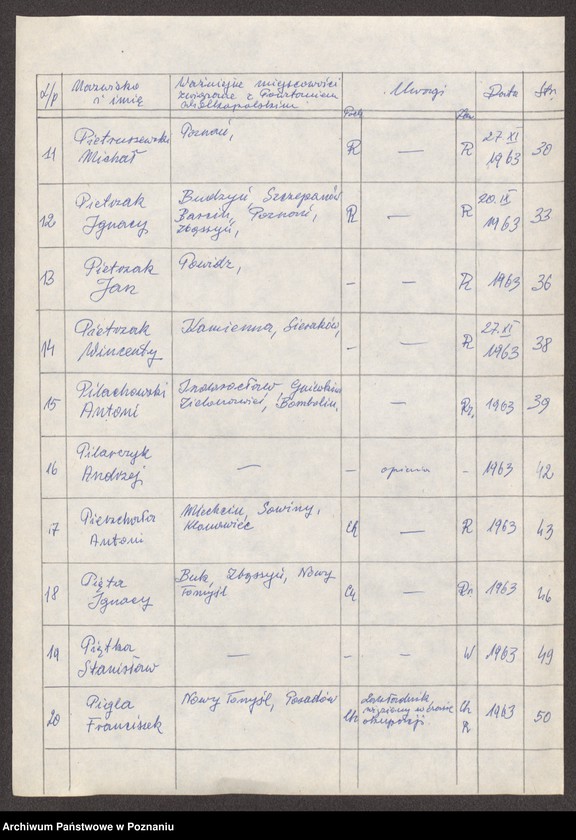 L/p Nazwisko i imię Ważniejsze miejscowości związane z Powstaniem Wielkopolskim Uwagi Data Str.
11 Pietruszewski Michał Poznań, R — R 27 XI 1963 30
12 Pietrzak Ignacy Budzyń, Szczepanów Barcin, Poznań, Zbąszyń, R — R 20 IX 1963 33
13 Pietrzak Jan Powidz, - — R 1963 36
14 Pietrzak Wincenty Kamienna, Sieraków, - — R 27 XI 1963 38
15 Piłachowski Antoni Inowrocław, Bombolin, — Rz, 1963 39
16 Pilarczyk Andrzej — - opinia - 1963 42
17 Pierzchała Antoni Sowiny, Klonowiec Ch — R 1963 43
18 Pięta Ignacy Buk, Zbąszyń, Nowy Tomyśl — 1963 46
19 Piątka Stanisław — - — W 1963 49
20 Pigla Franciszek Nowy Tomyśl, Posadów Ch więziony w czasie okupacji Ch R 1963 50
Archiwum Państwowe w Poznaniu